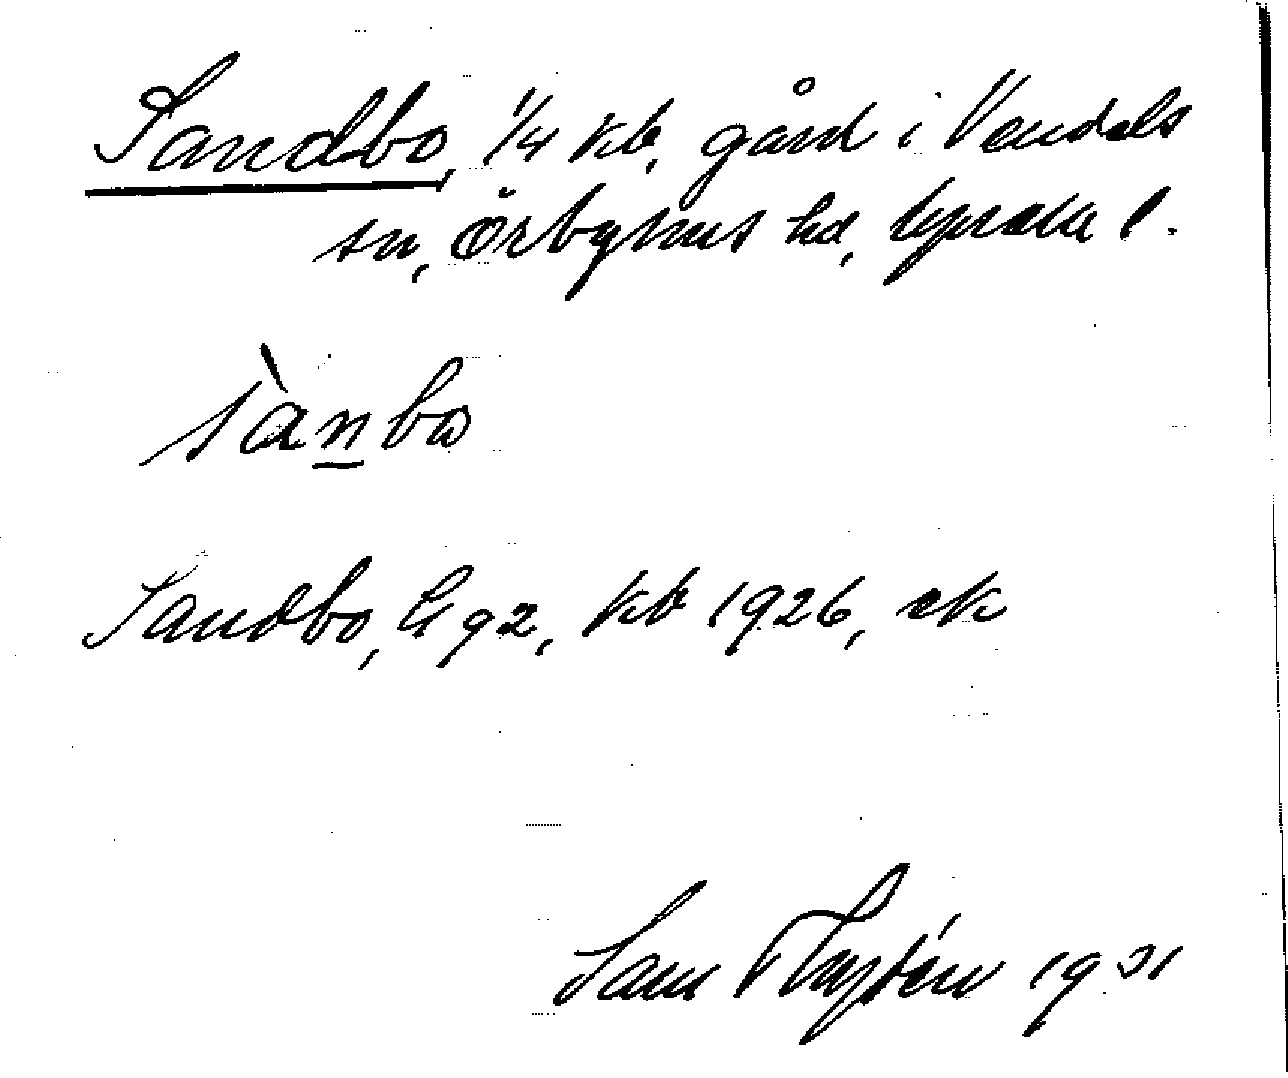 Sandbo, 1/4 kb, gård i Vendels
sn, Örbyhus hd, Uppsala l.
sànbo
Sandbo, kb 1926, ek
Sam 1931